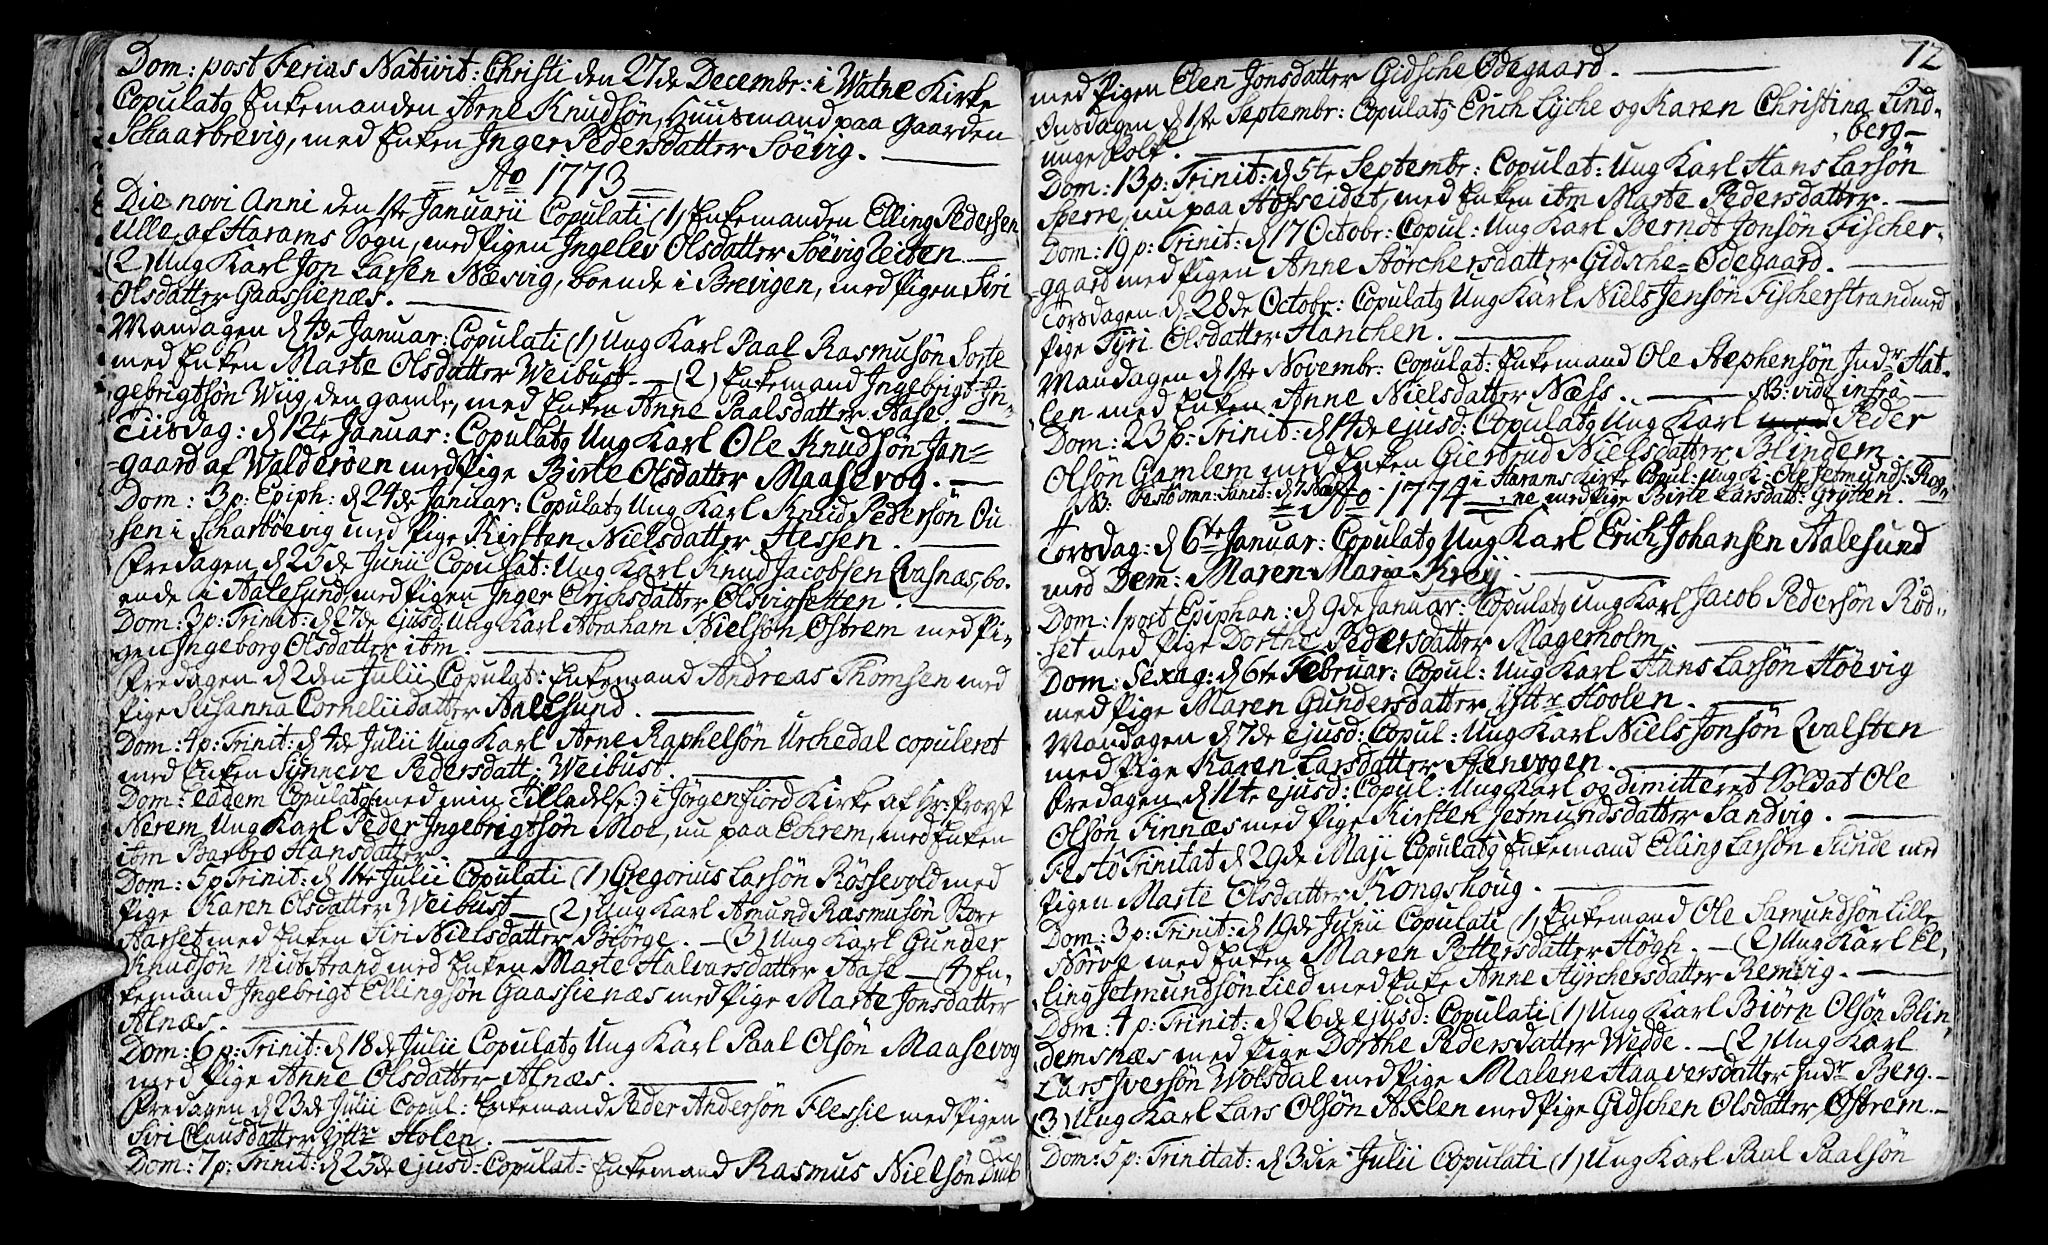 Dom: post Ferias Nativit: Christi den 27de Decembr: i Watne Kirke
Copulatg Enkemanden Arne Knudsön, Huusmand paa Gaarden
Schaarbrevig, med Enken Inger Pedersdatter Söevig.
Ao 1773
Die novi Anni den 1ste Januarii Copulati (1) Enkemanden Elling Pedersen
Ulle af Harams Sogn, med Pigen Ingelev Olsdatter Söevigzeiten.
(2) Ung Karl Jon Larsen Næsvig, boende i Brevigen, med Pigen Siri
Olsdatter Gaassienæs.
Mandagen d 4de Januar: Copulati (1) Ung Karl Paal Rasmusön Sorte
med Enken Marte Olsdatter Weibust. — (2) Enkemand Ingebrigt In-
gebrigtsön Wiig, den gamle, med Enken Anne Paalsdatter Aase.
Tiisdag: d 12te Januar: Copulatg Ung Karl Ole Knudsön Jan-
gaard af Walderöen med Pige Birte Olsdatter Maasevog.
Dom: 3 p: Epiph: d 24de Januar: Copulatg Ung Karl Knud Pedersön Ou
sen i Scharböevig med Pige Kirsten Nielsdatter Hessen.
Fredagen d 25de Junii Copulat: Ung Karl Knud Jacobsen Qvasnæs, bo-
ende i Aalesund, med Pigen Inger Erichsdatter Olsvigsetten.
Dom: 3 p: Trinit: d 27de ejusd: Ung Karl Abraham Nielsön Østrem med Pi-
gen Ingeborg Olsdatter ibm.
Fredagen d 2den Julii Copulat: Enkemand Andreas Thomsen med
Pige Susanna Corneliidatter Aalesund.
Dom: 4 p: Trinit: d 4de Julii Ung Karl Arne Raphelsön Urchedal copuleret
med Enken Synneve Pedersdatt: Weibust.
Dom: eadem Copulatg (med min Tilladelse:) i Jörgenfiord Kirke af Hr: Provst
Nerem Ung Karl Peder Ingebrigtsön Moe, nu paa Ehrem, med Enken
ibm Barbro Hansdatter.
Dom: 5 p Trinit: d 11te Julii Copulati (1) Gregorius Larsön Rössevold med
Pige Karen Olsdatter Weibust — (2) Ung Karl Amund Rasmusön Store
Aarset med Enken Siri Nielsdatter Biörge. — (3) Ung Karl Gunder
Knudsön Midstrand med Enken Marte Halvarsdatter Aase — (4) En-
kemand Ingebrigt Ellingsön Gaassienæs med Pige Marte Jonsdatter
Alnæs.
Dom: 6 p: Trinit: d 18de Julii Copulatg Ung Karl Paal Olsön Maasevog
med Pige Anne Olsdatter Alnæs.
Fredagen d 23de Julii Copul: Enkemand Peder Andersön Flessie med Pigen
Siri Clausdatter Yttr Holen.
Dom: 7 p: Trinit: d 25de ejusd: Copulat: Enkemand Rasmus Nielsön Duub
72
med Pigen Elen Jonsdatter Gidsche Ødegaard.
Onsdagen d 1ste Septembr: Copulatg Erich Lyche og Karen Christina Lind-
berg —
unge Folk.
Dom: 13 p: Trinit: d 5te Septembr: Copulat: Ung Karl Hans Larsön
Sperre, nu paa Hofseidet, med Enken ibm Marte Pedersdatter.
Dom: 19 p: Trinit: d 17 Octobr: Copul: Ung Karl Berndt Jonsön Fischer-
gaard med Pigen Anne Störchersdatter Gidsche-Ødegaard.
Torsdagen d 28de Octobr: Copulatg Ung Karl Niels Jensön Fischerstrand med
Pige Tyri Olsdatter Hanchen.
Mandagen d 1ste Novembr: Copulat: Enkemand Ole Stephensön Indr Hat-
len med Enken Anne Nielsdatter Næss. — NB: vide infra
Dom: 23 p: Trinit: d 14de ejusd: Copulatg Ung Karl Peder
Olsön Gamlem med Enken Giertrud Nielsdatter Blindem.
NB: Festo omn: Sanct: d 7 i Harams Kirke Copul: Ung K: Ole Jetmunds: Rog-
Ao 1774 ne med Pige Birte Larsdatt: Grytten.
Torsdag: d 6te Januar: Copulatg Ung Karl Erich Johansen Aalesund
med Dem: Maren Maria Krey.
Dom: 1 post Epiphan: d 9de Januar: Copulatg Ung Karl Jacob Pedersön Röd-
set med Pige Dorthe Pedersdatter Magerholm.
Dom: Sexag: d 6te Februar: Copul: Ung Karl Hans Larsön Höevig
med Pige Maren Gundersdatter Yttr Hoolen.
Mandagen d 7de ejusd: Copul: Ung Karl Niels Jonsön Qvalsten
med Pige Karen Larsdatter Stenvogen.
Fredagen d 11te ejusd: Copul: Ung Karl og dimitteret Soldat Ole
Olsön Finnæs med Pige Kirsten Jetmundsdatter Sandvig.
Festo Trinitat d 29de Maji Copulatg Enkemand Elling Larsön Sunde med
Pigen Marte Olsdatter Kongshoug.
Dom: 3 p: Trinit: d 19de Junii Copulati (1) Enkemand Ole Samundsön Lille
Nörve med Enken Maren Pettersdatter Högh. — (2) Ung Karl El-
ling Jetmundsön Lied med Enke Anne Styrchersdatter Remvig.
Dom: 4 p: Trinit: d 26de ejusd: Copulati (1) Ung Karl Biörn Olsön Blin-
demsnæs med Pige Dorthe Pedersdatter Wedde. — (2) Ung Karl
Lars Iversön Wolsdal med Pige Malene Haaversdatter Indr Berg.
(3) Ung Karl Lars Olsön Axlen med Pige Gidschen Olsdatter Østrem.
Dom: 5 p: Trinitat: d 3die Julii Copulati (1) Ung Karl Paul Paalsön